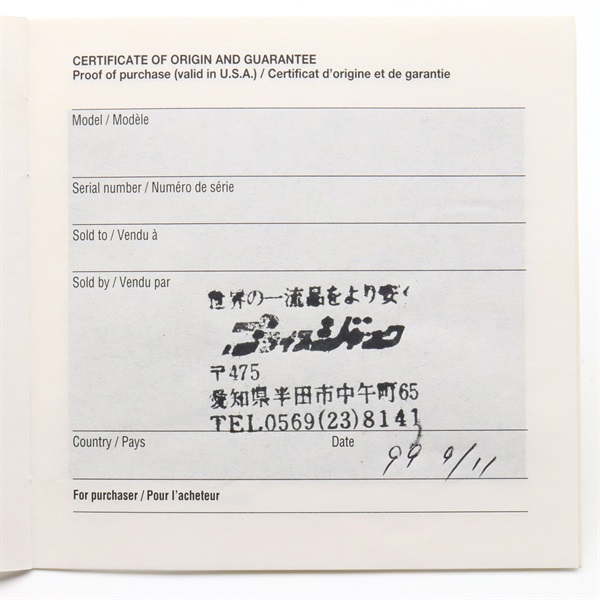 CERTIFICATE OF ORIGIN AND GUARANTEE
Proof of purchase (valid in U.S.A.) / Certificat d'origine et de garantie
Model / Modèle
Serial number / Numéro de série
Sold to / Vendu à
Sold by / Vendu par
世界の一流品をより安く
プライスジャック
〒475
愛知県半田市中午町65
TEL0569(23)8141
Country / Pays
Date
99 9/11
For purchaser / Pour l'acheteur